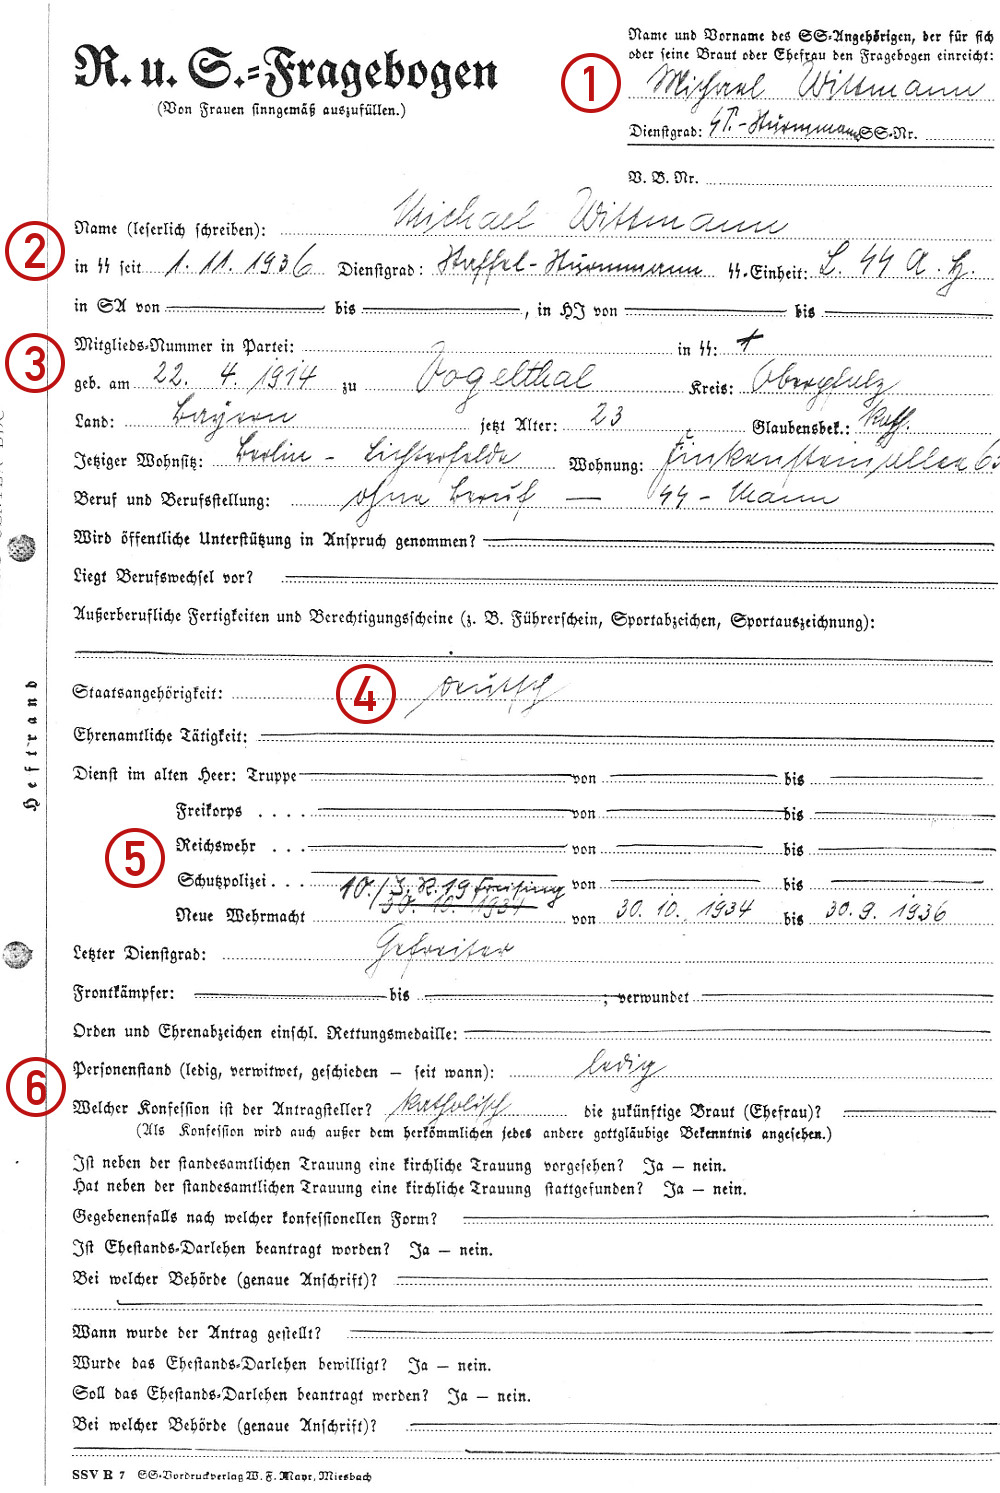 R. u. S.=Fragebogen
(Von Frauen sinngemäß auszufüllen.)
Name und Vorname des SS=Angehörigen, der für sich
oder seine Braut oder Ehefrau den Fragebogen einreicht:
1
Michael Wittmann
Dienstgrad: St.-Sturmmann SS=Nr.
V. B. Nr.
Name (leserlich schreiben): Michael Wittmann
2
in SS seit 1. 11. 1936 Dienstgrad: Staffel-Sturmmann SS=Einheit: L. SS A. H.
in SA von bis , in HJ von bis
Mitglieds=Nummer in Partei: in SS:
3
geb. am 22. 4. 1914 zu Vogelthal Kreis: Oberpfalz
Land: Bayern jetzt Alter: 23 Glaubensbek.: Kath.
Jetziger Wohnsitz: Berlin - Lichterfelde Wohnung: Finkensteinallee 63
Beruf und Berufsstellung: ohne Beruf — SS - Mann
Wird öffentliche Unterstützung in Anspruch genommen?
Liegt Berufswechsel vor?
Außerberufliche Fertigkeiten und Berechtigungsscheine (z. B. Führerschein, Sportabzeichen, Sportauszeichnung):
Staatsangehörigkeit: 4 deutsch
Ehrenamtliche Tätigkeit:
Dienst im alten Heer: Truppe von bis
Freikorps . . . . von bis
5
Reichswehr . . . von bis
Schutzpolizei . . . von bis
10./J. R. 19 Freising
Neue Wehrmacht 30. 10. 1934 von 30. 10. 1934 bis 30. 9. 1936
Letzter Dienstgrad: Gefreiter
Frontkämpfer: bis ; verwundet
Orden und Ehrenabzeichen einschl. Rettungsmedaille:
6
Personenstand (ledig, verwitwet, geschieden — seit wann): ledig
Welcher Konfession ist der Antragsteller? Katholisch die zukünftige Braut (Ehefrau)?
(Als Konfession wird auch außer dem herkömmlichen jedes andere gottgläubige Bekenntnis angesehen.)
Ist neben der standesamtlichen Trauung eine kirchliche Trauung vorgesehen? Ja — nein.
Hat neben der standesamtlichen Trauung eine kirchliche Trauung stattgefunden? Ja — nein.
Gegebenenfalls nach welcher konfessionellen Form?
Ist Ehestands=Darlehen beantragt worden? Ja — nein.
Bei welcher Behörde (genaue Anschrift)?
Wann wurde der Antrag gestellt?
Wurde das Ehestands=Darlehen bewilligt? Ja — nein.
Soll das Ehestands=Darlehen beantragt werden? Ja — nein.
Bei welcher Behörde (genaue Anschrift)?
SSV R 7 SS=Vordruckverlag W. F. Mayr, Miesbach
Heftrand